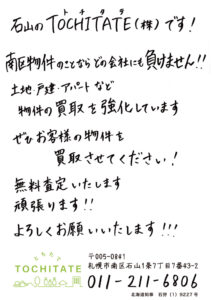 石山の TOCHITATE(株)です!
トチタテ
南区物件のことならどの会社にも負けません!!
土地・戸建・アパートなど
物件の買取を強化しています
ぜひお客様の物件を
買取させてください!
無料査定いたします
頑張ります!!
よろしくお願いいたします!!!
とちたて
TOCHITATE
〒005-0841
札幌市南区石山1条7丁目7番43-2
011-211-6806
北海道知事 石狩(1)9227号